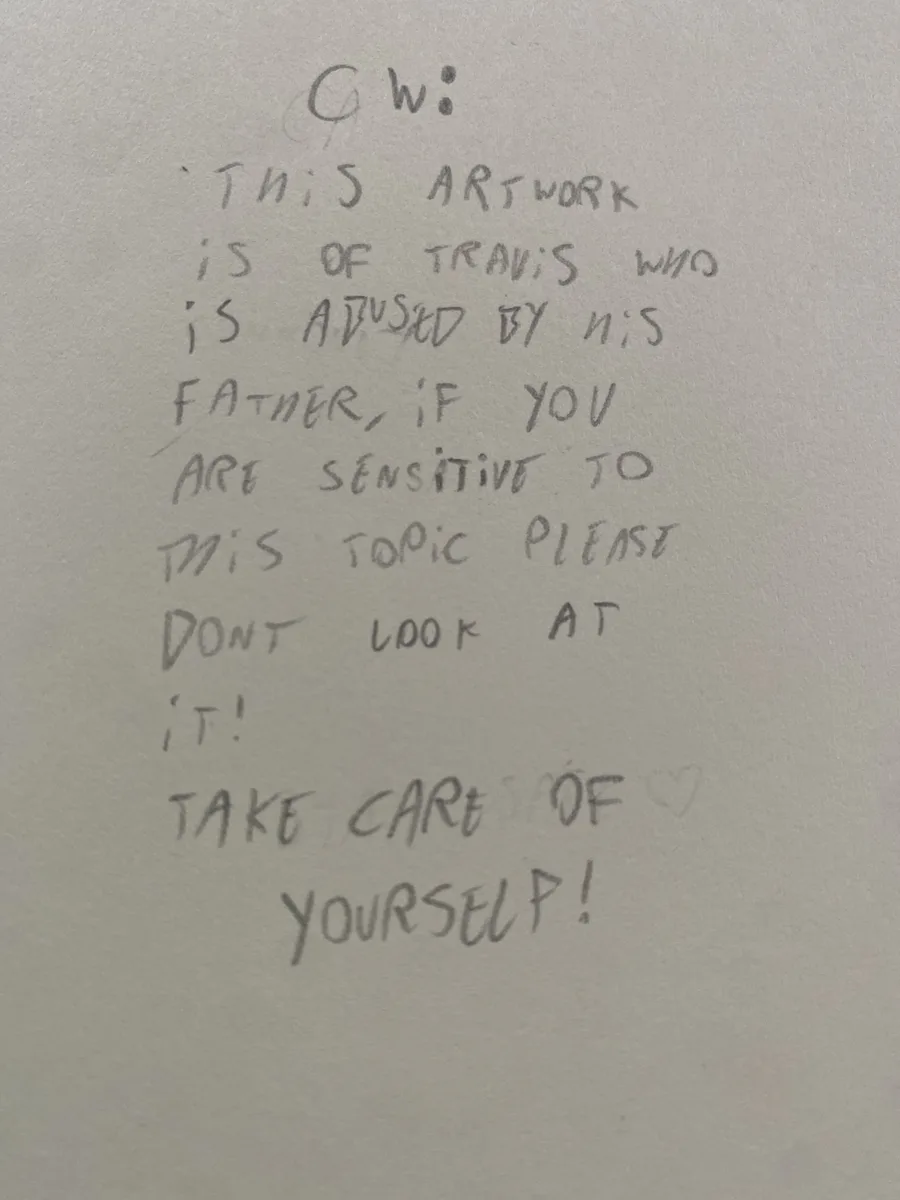 CW:
THiS ARTWORK
iS OF TRAViS WHO
iS ABUSED BY HiS
FATHER, iF YOU
ARE SENSiTiVE TO
THiS TOPiC PLEASE
DONT LOOK AT
iT!
TAKE CARE OF ♡
YOURSELF!